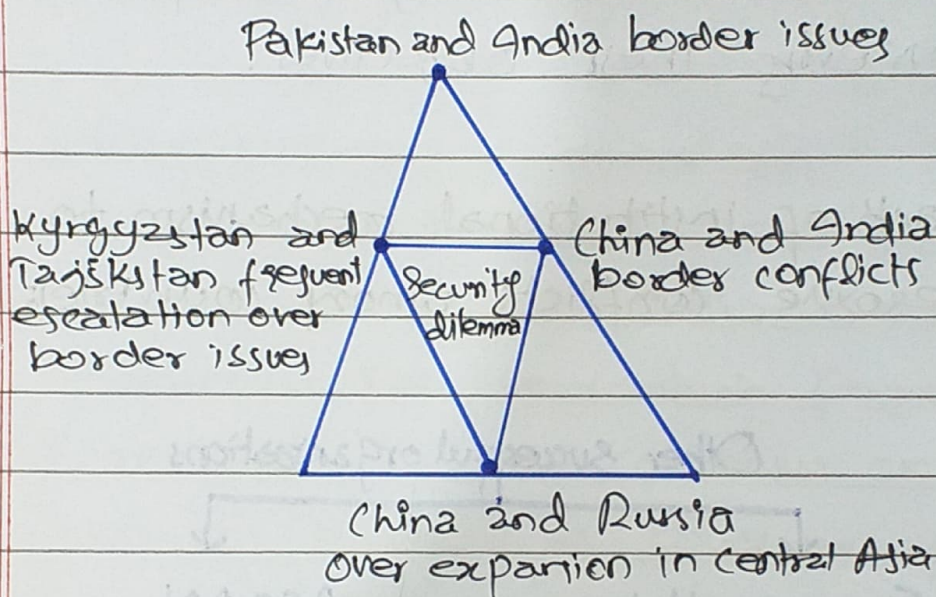 Pakistan and India border issues
Kyrgyzstan and
Tajikstan frequent
escalation over
border issues
Security
dilemma
China and India
border conflicts
China and Russia
over expansion in central Asia